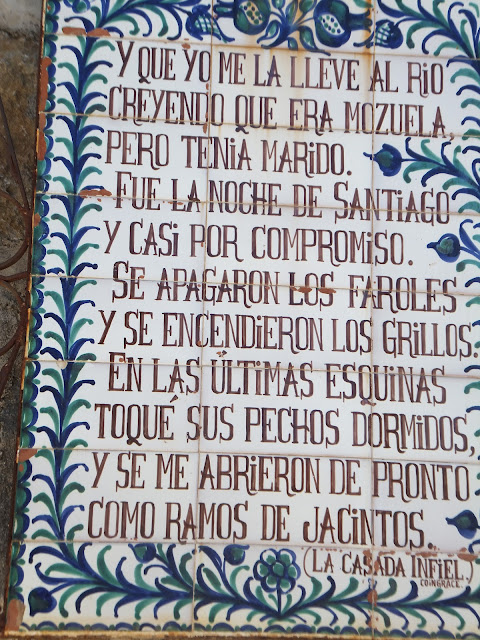 Y QUE YO ME LA LLEVE AL RIO
CREYENDO QUE ERA MOZUELA,
PERO TENIA MARIDO.
FUE LA NOCHE DE SANTIAGO
Y CASI POR COMPROMISO.
SE APAGARON LOS FAROLES
Y SE ENCENDIERON LOS GRILLOS.
EN LAS ÚLTIMAS ESQUINAS
TOQUÉ SUS PECHOS DORMIDOS,
Y SE ME ABRIERON DE PRONTO
COMO RAMOS DE JACINTOS.
(LA CASADA INFIEL.)
COINGRACE